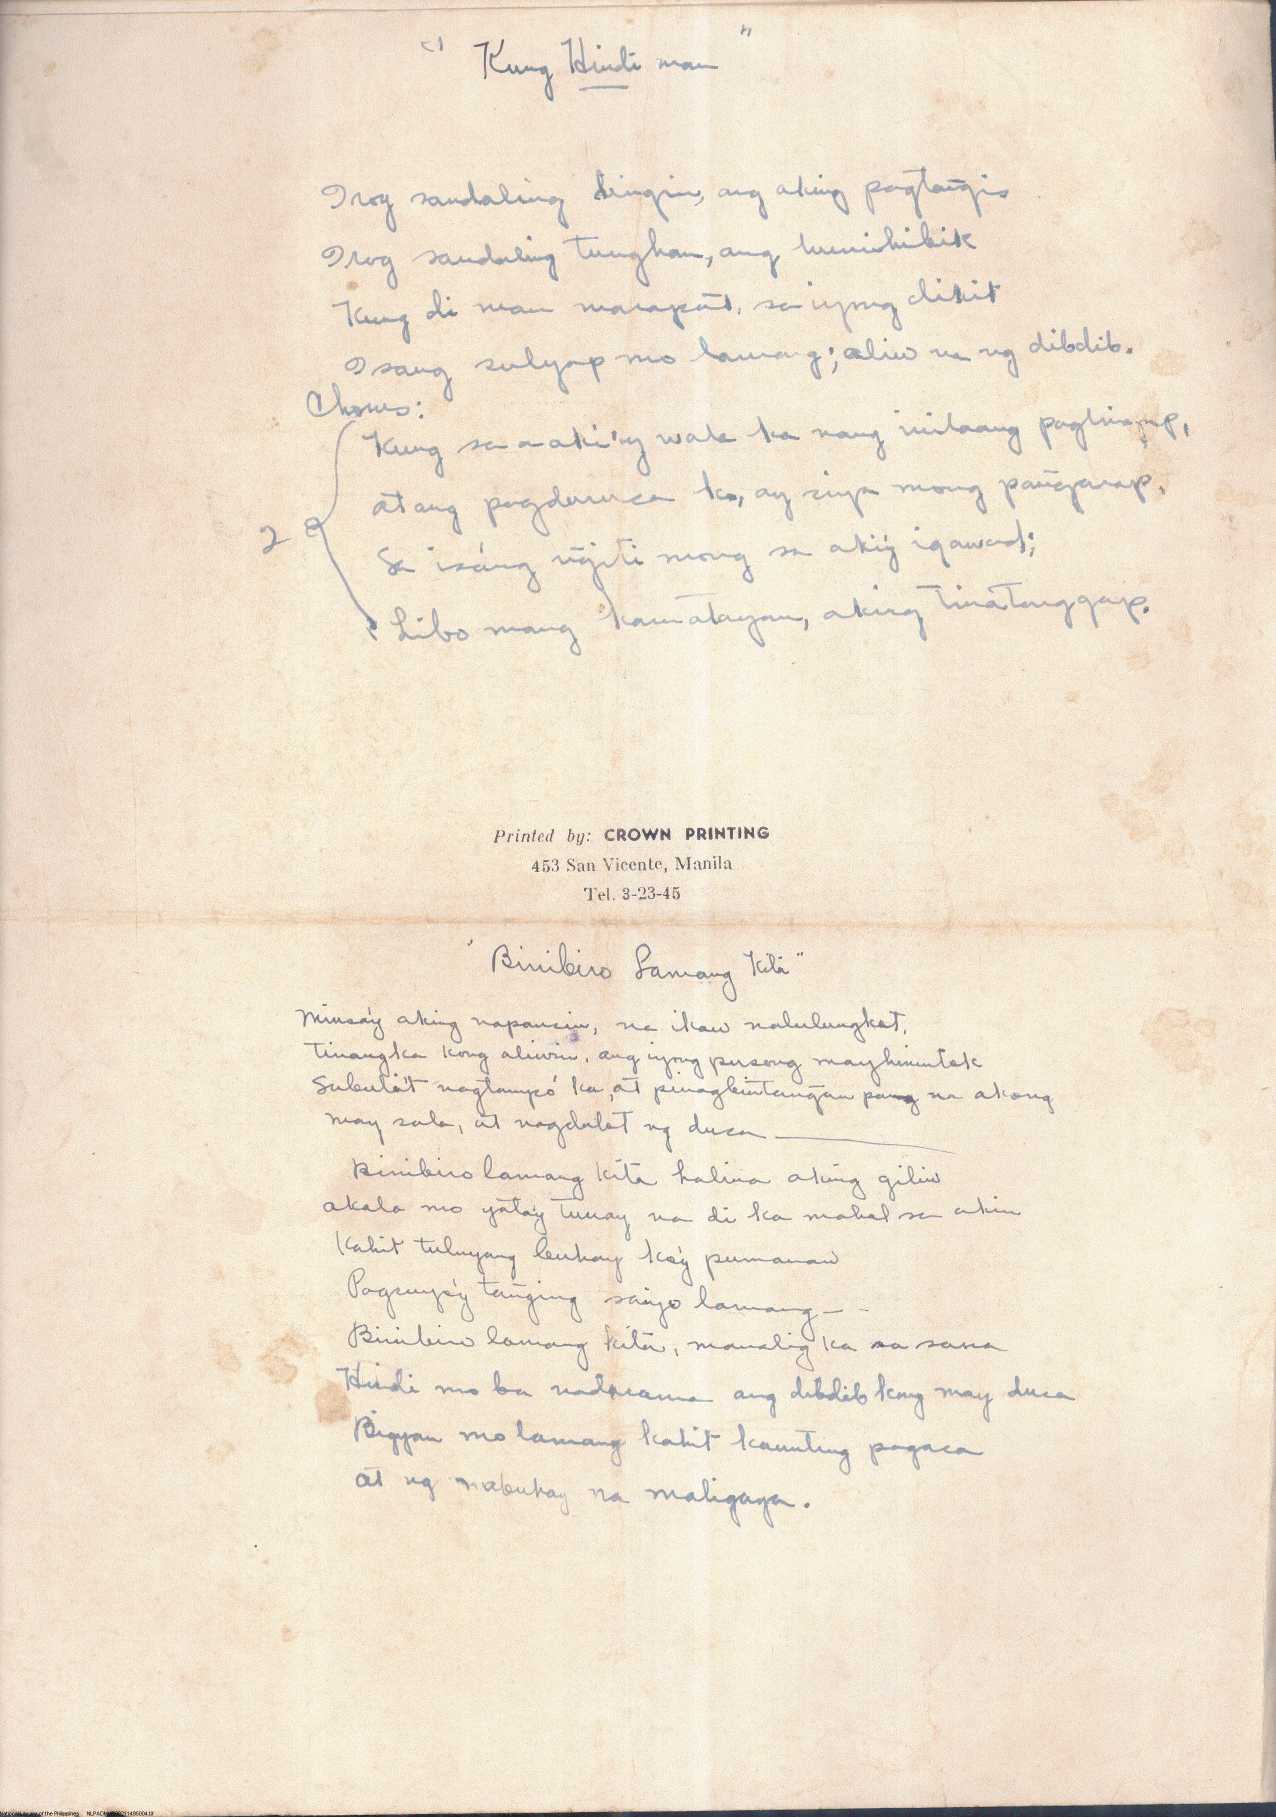 "Kung Hindi man"
Irog sandaling dingin, ang aking pagtañgis
Irog sandaling tunghan, ang humihibik
Kung di man marapat, sa iyong dikit
Isang sulyap mo lamang; aliw na ng dibdib.
Chorus:
Kung sa aki'y wala ka nang inilaang paglingap,
At ang pagdurusa ko, ay siya mong pañgarap,
2 Sa isáng ñgiti mong sa aki'y igawad;
Libo mang kamatayan, aking tinatanggap.
Printed by: CROWN PRINTING
453 San Vicente, Manila
Tel. 3-23-45
"Binibiro Lamang Kita"
Minsa'y aking napansin, na ikaw nalulungkot,
Tinangka kong aliwin, ang iyong pusong may himutok
Subali't nagtampó ka, at pinagbintañgan pang na akong
may sala, at nagdulot ng dusa
Binibiro lamang kita halina aking giliw
akala mo yata'y tunay na di ka mahal sa akin
Kahit tuluyang buhay ko'y pumanaw
Pagsuyo'y tañging saiyo lamang - -
Binibiro lamang kita, manalig ka sa sana
Hindi mo ba nadarama ang dibdib kong may dusa
Bigyan mo lamang kahit kaunting pagasa
at ng mabuhay na maligaya.